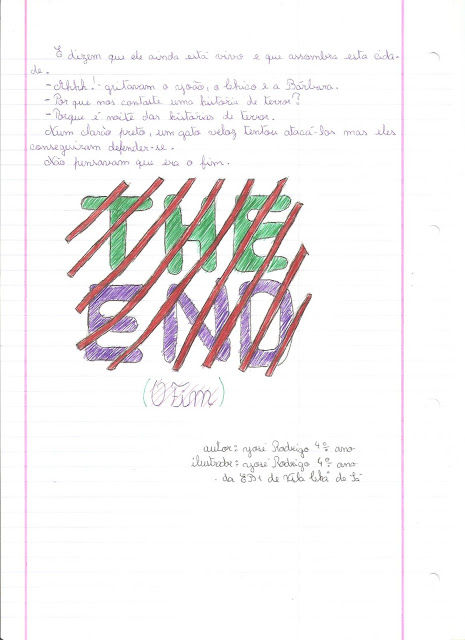 E dizem que ele ainda está vivo e que assombra esta cida-
de.
-Ahhh! - gritaram o João, o Chico e a Bárbara.
-Por que nos contaste uma história de terror?
-Porque é noite das histórias de terror.
Num clarão preto, um gato veloz tentou atacá-los mas eles
conseguiram defender-se.
Não pensavam que era o fim.
THE
END
(O Fim)
autor: José Rodrigo 4º ano
ilustrador: José Rodrigo 4º ano
da EB1 de Vila Chã de Sá